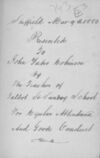 Suffield Mar 9th 1880
Presented
To
John Yates Robinson
By
The Teacher of
Talbot St Sunday School
For Regular Attendance
And Good Conduct